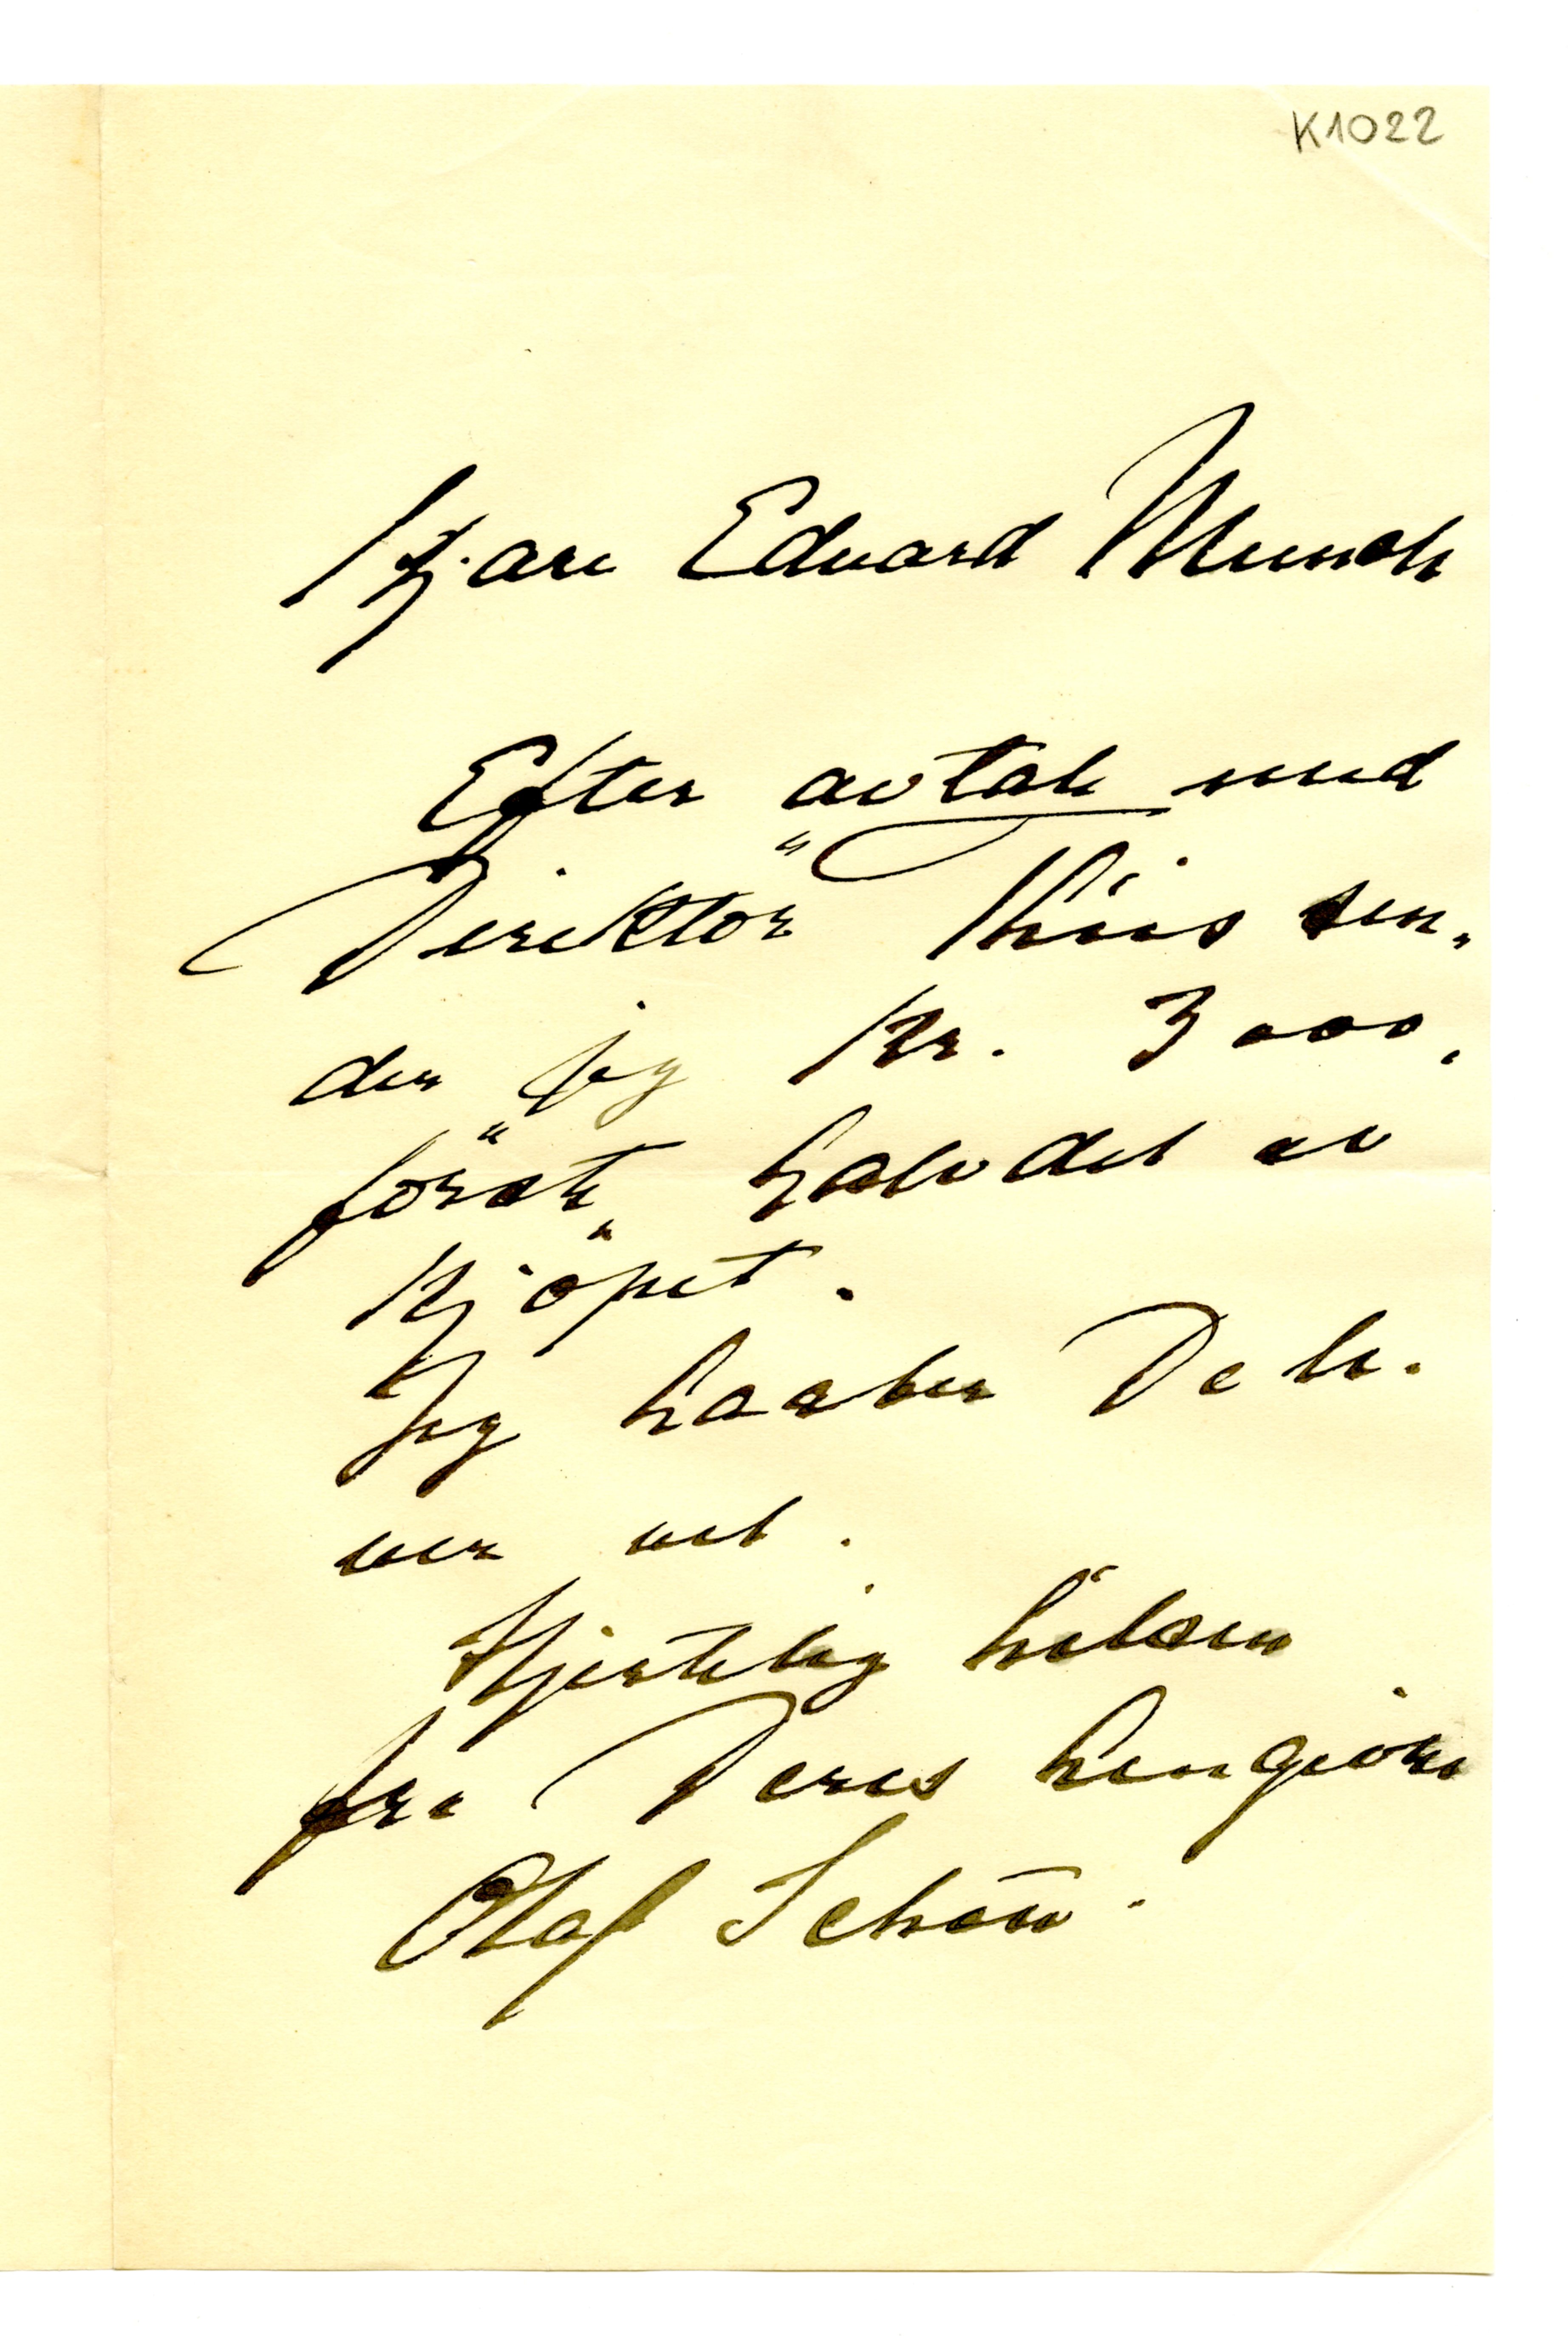 K1022
Kjære Edvard Munch
Efter avtale med
Direktör Thiis sen„
der jeg Kr. 3000,
förste halvdel av
Kjöpet.
Jeg haaber De le„
ver vel.
Hjertelig hilsen
fra Deres hengivne
Olaf Schou.